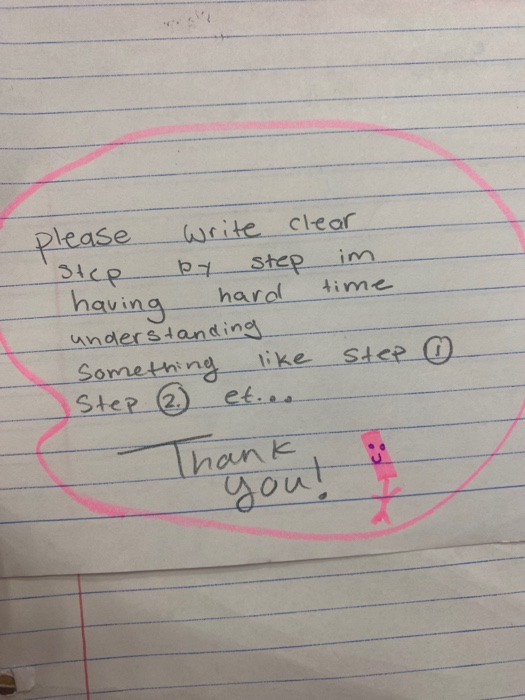 please write clear
step by step im
having hard time
understanding
Something like step ①
Step ② et...
Thank
you!